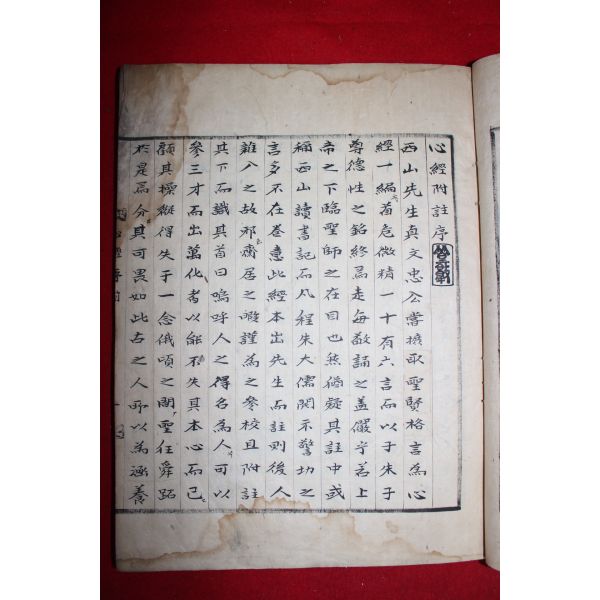 心經附註序
西山先生真文忠公嘗摭取聖賢格言為心
經一編首危微精一十有六言而以子朱子
尊德性之銘終焉走每敬誦之盖儼乎若上
帝之下臨聖師之在目也然猶疑其註中或
稱西山讀書記而凡程朱大儒開示警切之
言多不在卷意此經本出先生而註則後人
雜入之故邪齋居之暇謹為之參校且附註
其下而識其首曰嗚呼人之得名為人可以
參三才而出萬化者以能不失其本心而已
顧其操縱得失于一念俄頃之間聖狂舜跖
於是焉分其可畏如此古之人所以為涵養